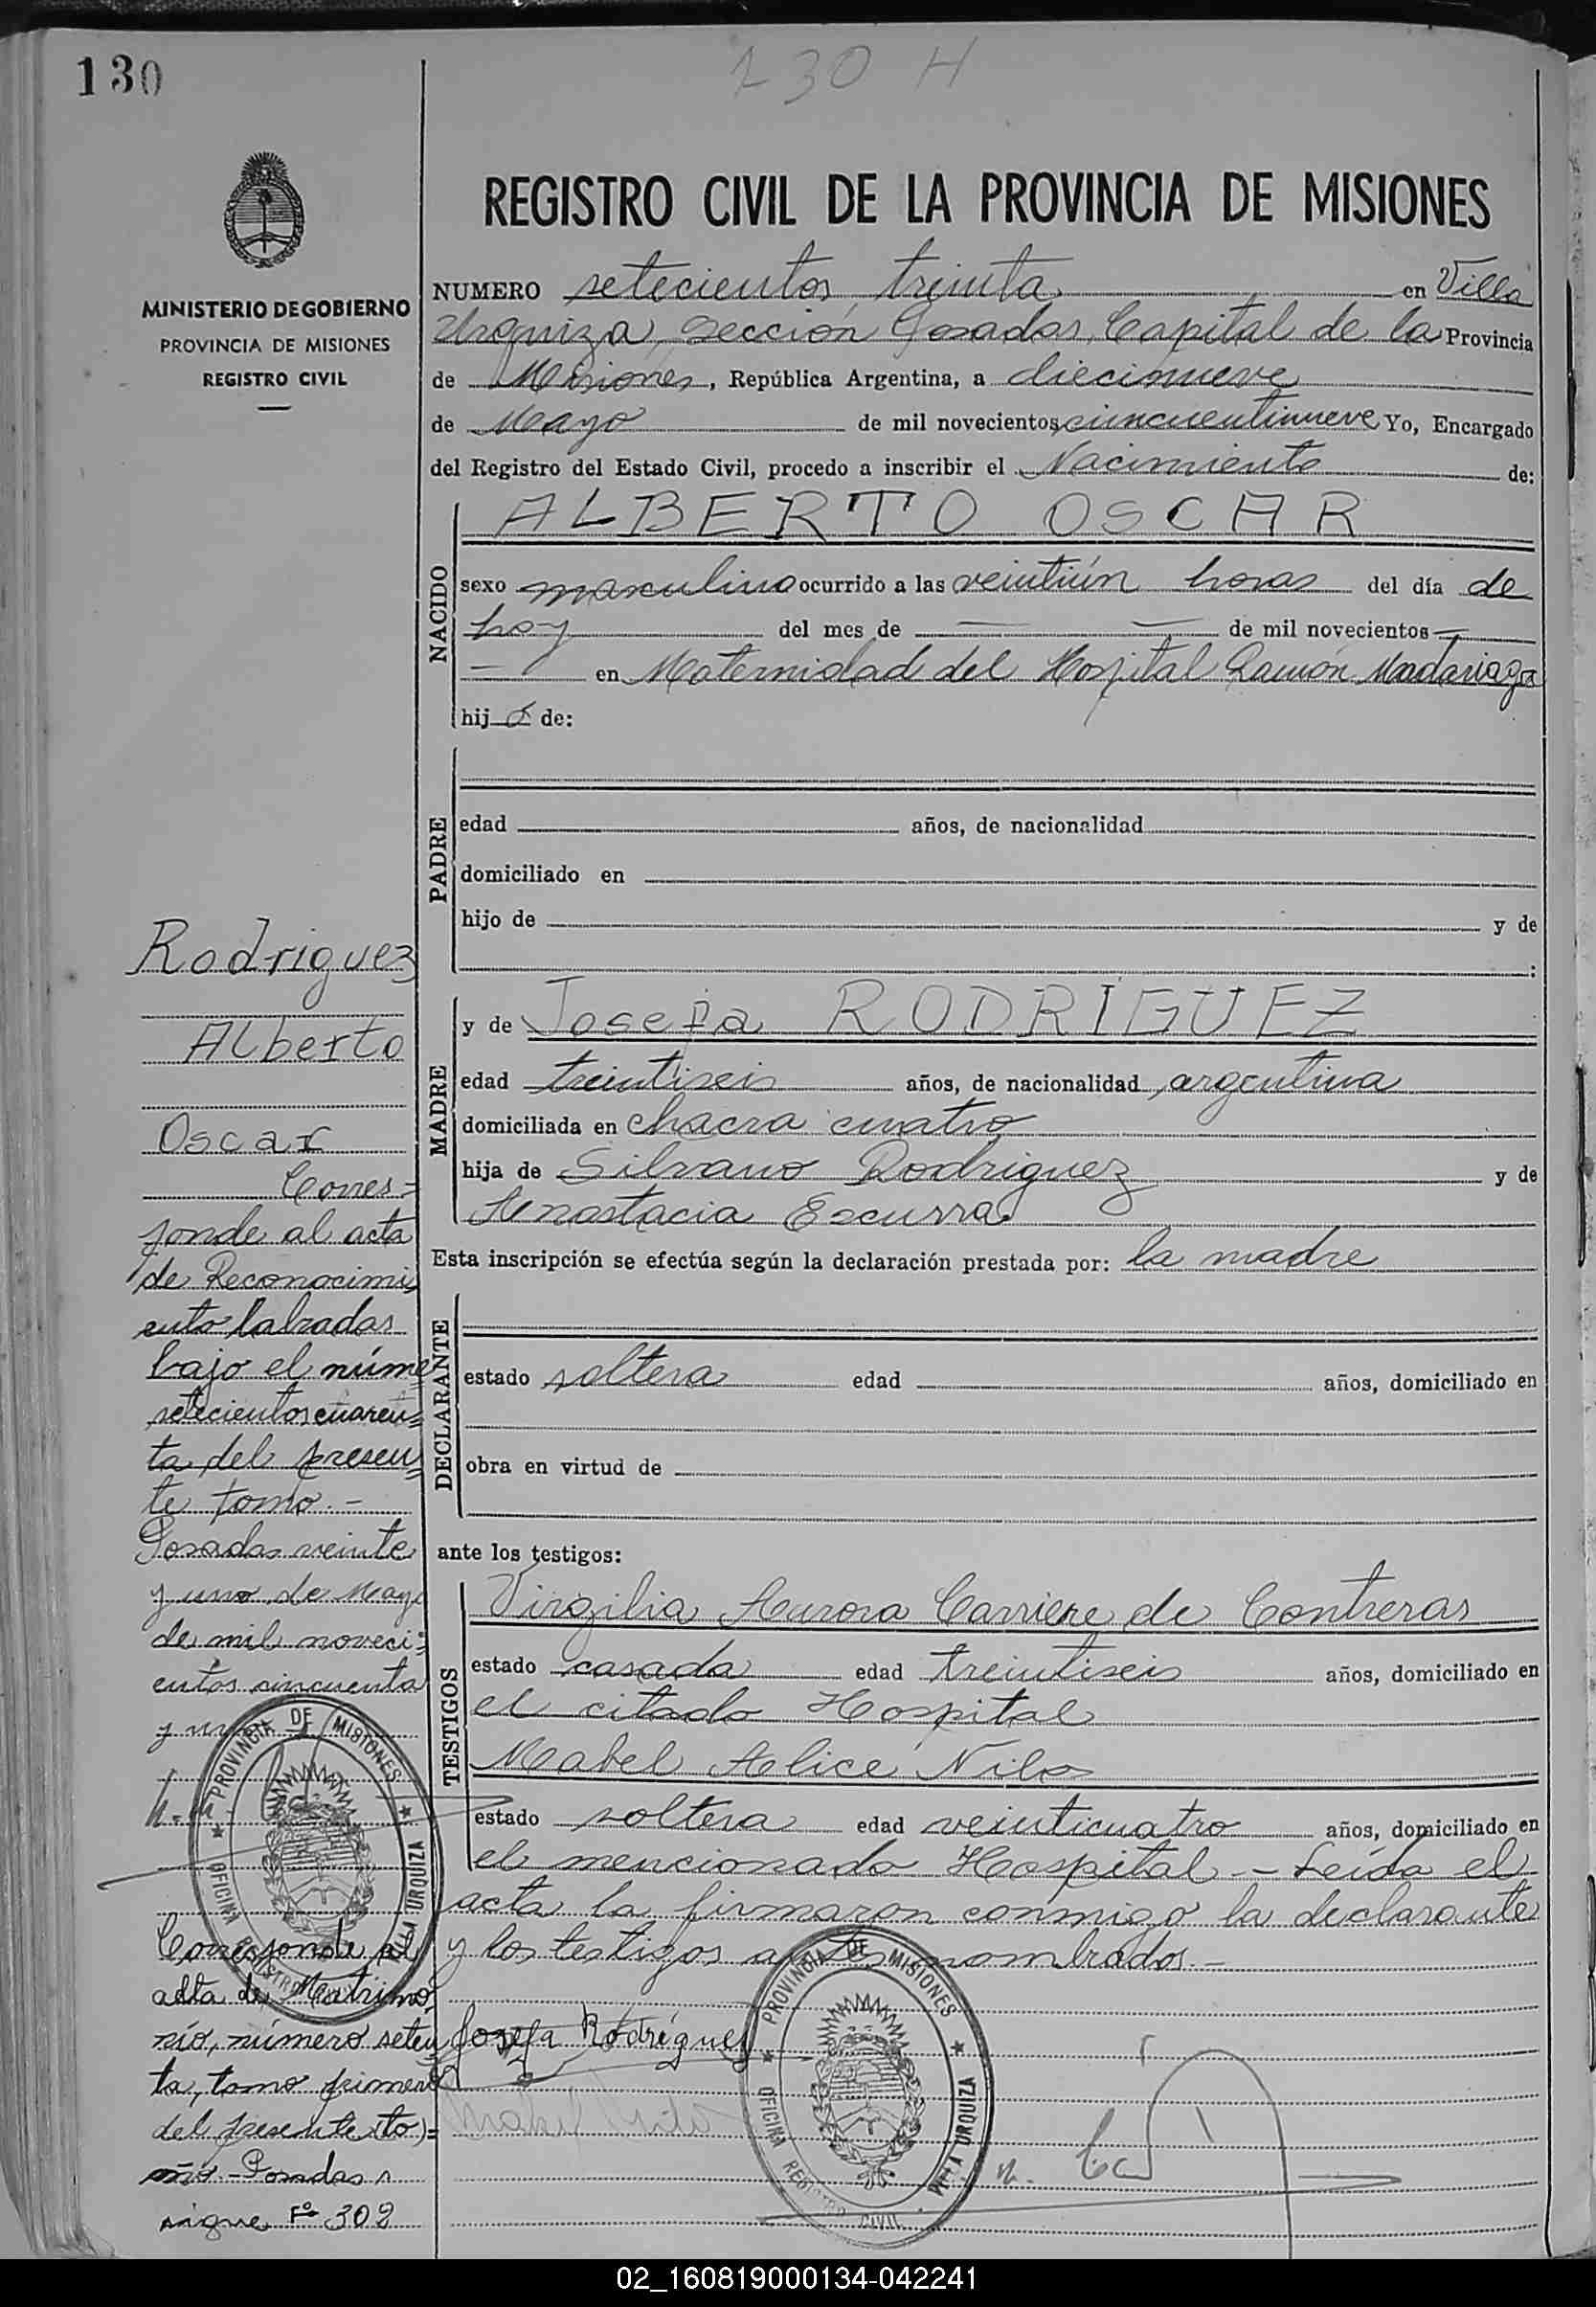 130
130 H
MINISTERIO DE GOBIERNO
PROVINCIA DE MISIONES
REGISTRO CIVIL
REGISTRO CIVIL DE LA PROVINCIA DE MISIONES
NUMERO setecientos treinta en Villa
Urquiza, Sección Posadas, Capital de la Provincia
de Misiones, República Argentina, a diecinueve
de Mayo de mil novecientos cincuentinueve Yo, Encargado
del Registro del Estado Civil, procedo a inscribir el Nacimiento de:
NACIDO
ALBERTO OSCAR
sexo masculino ocurrido a las veintiún horas del día de
hoy del mes de — — de mil novecientos —
— en Maternidad del Hospital Ramón Madariaga
hijo de:
PADRE
edad años, de nacionalidad
domiciliado en
hijo de y de
:
MADRE
y de Josefa RODRIGUEZ
edad treintiseis años, de nacionalidad argentina
domiciliada en chacra cuatro
hija de Silvano Rodriguez y de
Anastacia Escurra
Esta inscripción se efectúa según la declaración prestada por: la madre
DECLARANTE
estado soltera edad años, domiciliado en
obra en virtud de
ante los testigos:
TESTIGOS
Virgilia Aurora Carriere de Contreras
estado casada edad treintiseis años, domiciliado en
el citado Hospital
Mabel Alice Nilo
estado soltera edad veinticuatro años, domiciliado en
el mencionado Hospital.- Leída el
acta la firmaron conmigo la declarante
y los testigos antes nombrados.-
Josefa Rodríguez
Mabel Nilo
PROVINCIA DE MISIONES
OFICINA REGISTRO CIVIL VILLA URQUIZA
Rodriguez
Alberto
Oscar
Corres=
ponde al acta
de Reconocimi
ento labradas
bajo el núme
setecientos cuaren=
ta del presen=
te tomo.-
Posadas veinte
y uno de Mayo
de mil noveci=
entos cincuenta
y
PROVINCIA DE MISIONES
OFICINA REGISTRO VILLA URQUIZA
Corresponde al
acta de Matrimo
nio, número seten
ta, tomo primero
del presente (to)=
año.- Posadas
sigue Fº 302
02_160819000134-042241